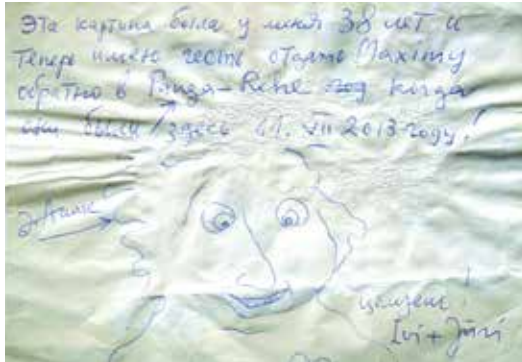 Эта картина была у меня 38 лет и
теперь имею честь отдать Maximy
обратно в год когда
они были здесь 11. VII 2013 году!
целуем!
Ivi + Jüri